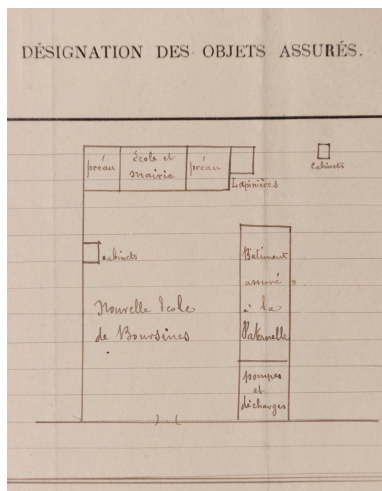 DÉSIGNATION DES OBJETS ASSURÉS.
préau
école et
mairie
préau
Lapinières
Cabinets
cabinets
Nouvelle École
de Boursines
Bâtiment
assuré
à la
Paternelle
pompes
et
décharges